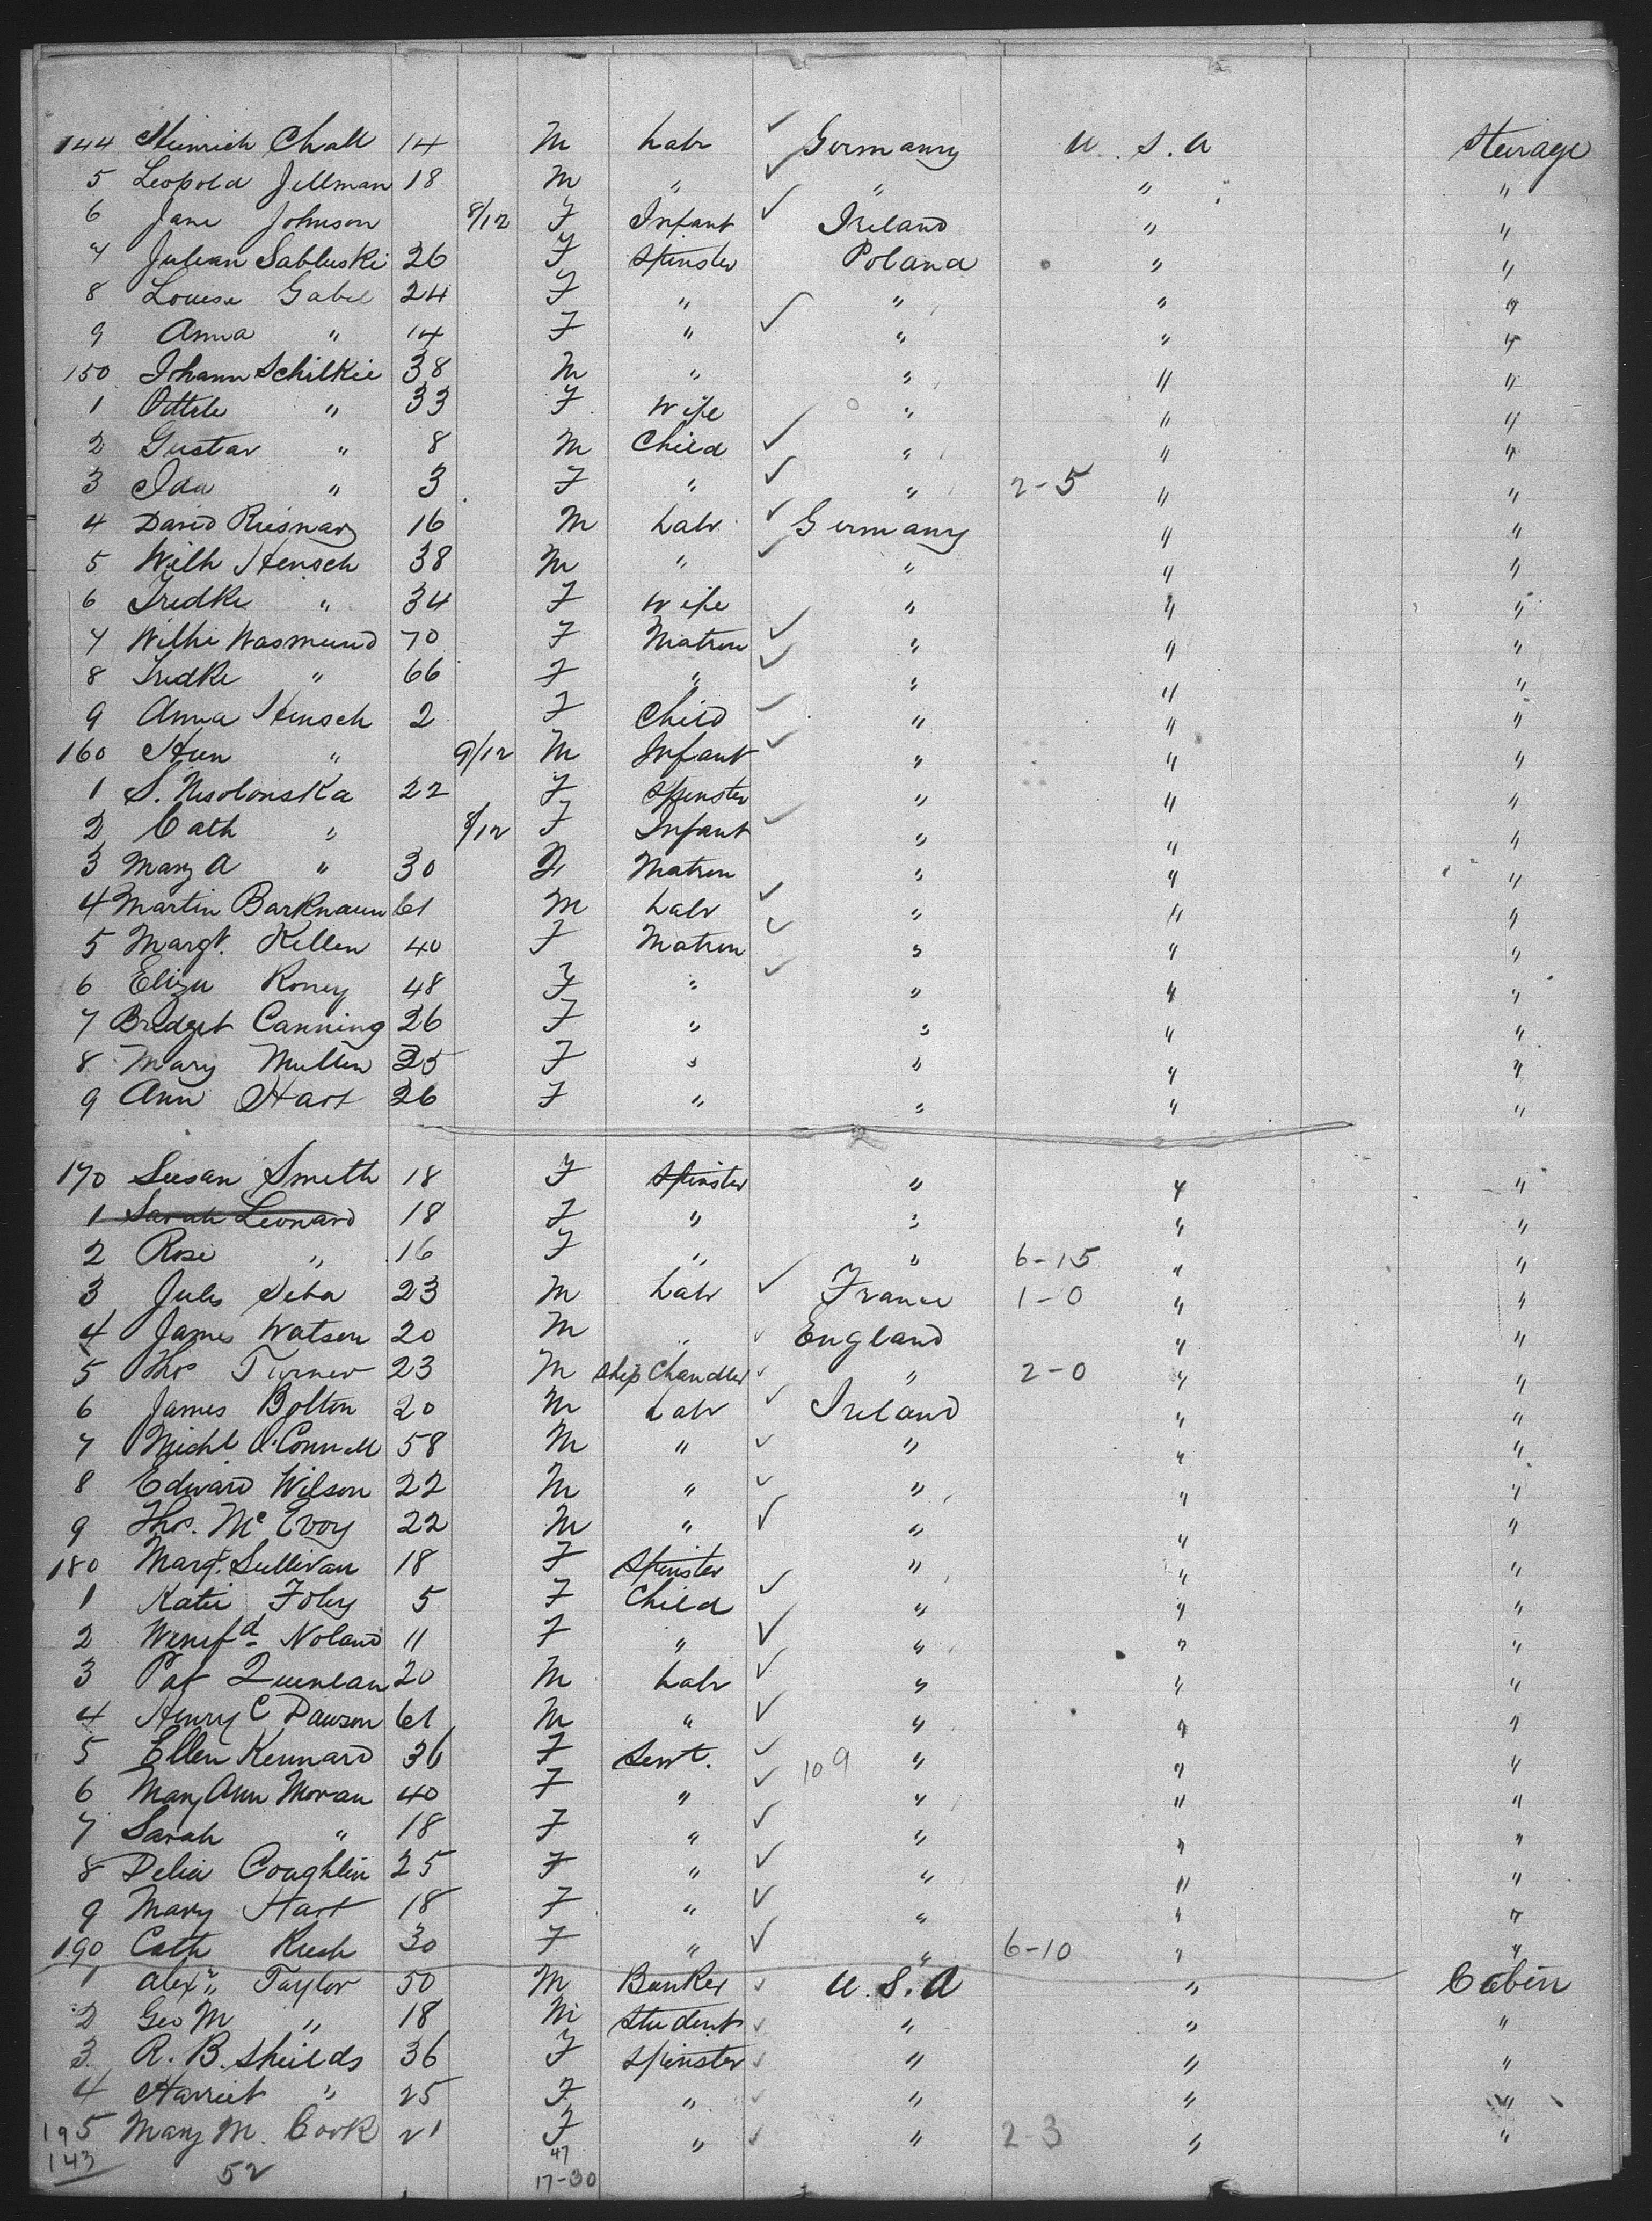 144 Heinrich Chall 14 M Labr ✓ Germany U.S.A Steirage
5 Leopold Jellman 18 M " ✓ " " "
6 Jane Johnson 8/12 F Infant ✓ Ireland " "
7 Julean Sabluski 26 F Spinster Poland " "
8 Louise Gabel 24 F " " " "
9 Anna " 14 F " ✓ " " "
150 Johann Schilkie 38 M " " " "
1 Ottele " 33 F Wife " " "
2 Gustav " 8 M Child ✓ " " "
3 Ida " 3 F " ✓ " 2-5 " "
4 David 16 M Labr ✓ Germany " "
5 Wilh Hensch 38 M " ✓ " " "
6 Fredke " 34 F Wife " " "
7 Wilhe Wasmund 70 F Matron ✓ " " "
8 Fredke " 66 F " ✓ " " "
9 Anna Hensch 2 F Child ✓ " " "
160 " 9/12 M Infant ✓ " " "
1 S. 22 F Spinster " " "
2 Cath " 8/12 F Infant ✓ " " "
3 Mary A " 30 F Matron " " "
4 Martin Barkmann 61 M Labr ✓ " " "
5 Margt. Killen 40 F Matron ✓ " " "
6 Eliza Roney 48 F " ✓ " " "
7 Bridget Canning 26 F " " " "
8 Mary Mullen 25 F " " " "
9 Ann Hart 26 F " " " "
170 Susan Smith 18 F Spinster " " "
1 Sarah Leonard 18 F " " " "
2 Rose " 16 F " " 6-15 " "
3 Jules Seba 23 M Labr ✓ France 1-0 " "
4 James Watson 20 M " ✓ England " "
5 Thos Turner 23 M Ship Chandler ✓ " 2-0 " "
6 James Bolton 20 M Labr ✓ Ireland " "
7 Michl O'Connell 58 M " ✓ " " "
8 Edward Wilson 22 M " ✓ " " "
9 Thos. McEvoy 22 M " ✓ " " "
180 Margt. Sullivan 18 F Spinster " " "
1 Katie Foley 5 F Child ✓ " " "
2 Winefd Noland 11 F " ✓ " " "
3 Pat Quinlan 20 M Labr ✓ " " "
4 Henry C Dawson 61 M " ✓ " " "
5 Ellen Kennard 36 F Servt. ✓ 109 " " "
6 Mary Ann Moran 40 F " ✓ " " "
7 Sarah " 18 F " ✓ " " "
8 Delia Coughlin 25 F " ✓ " " "
9 Mary Hart 18 F " ✓ " " "
190 Cath Rush 30 F " ✓ " 6-10 " "
1 Alexr Taylor 50 M Banker ✓ U.S.A " Cabin
2 Geo M " 18 M Student ✓ " " "
3 R. B. Shields 36 F Spinster ✓ " " "
4 Harriet " 25 F " ✓ " " "
195 Mary M. Cook 21 F " ✓ " 2-3 " "
143 52 47
17-30